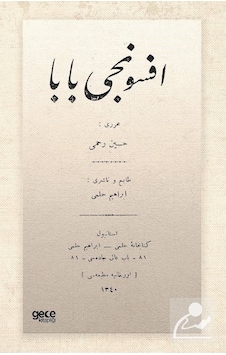 افسونجی بابا
محرری :
حسین رحمی
طابع و ناشری :
ابراهیم حلمی
استانبول
كتابخانهٔ حلمی — ابراهیم حلمی
٨١ - باب عالی جاده‌سی - ٨١
[ اورخانیه مطبعه‌سی ]
١٣٤٠
gece
kitaplığı